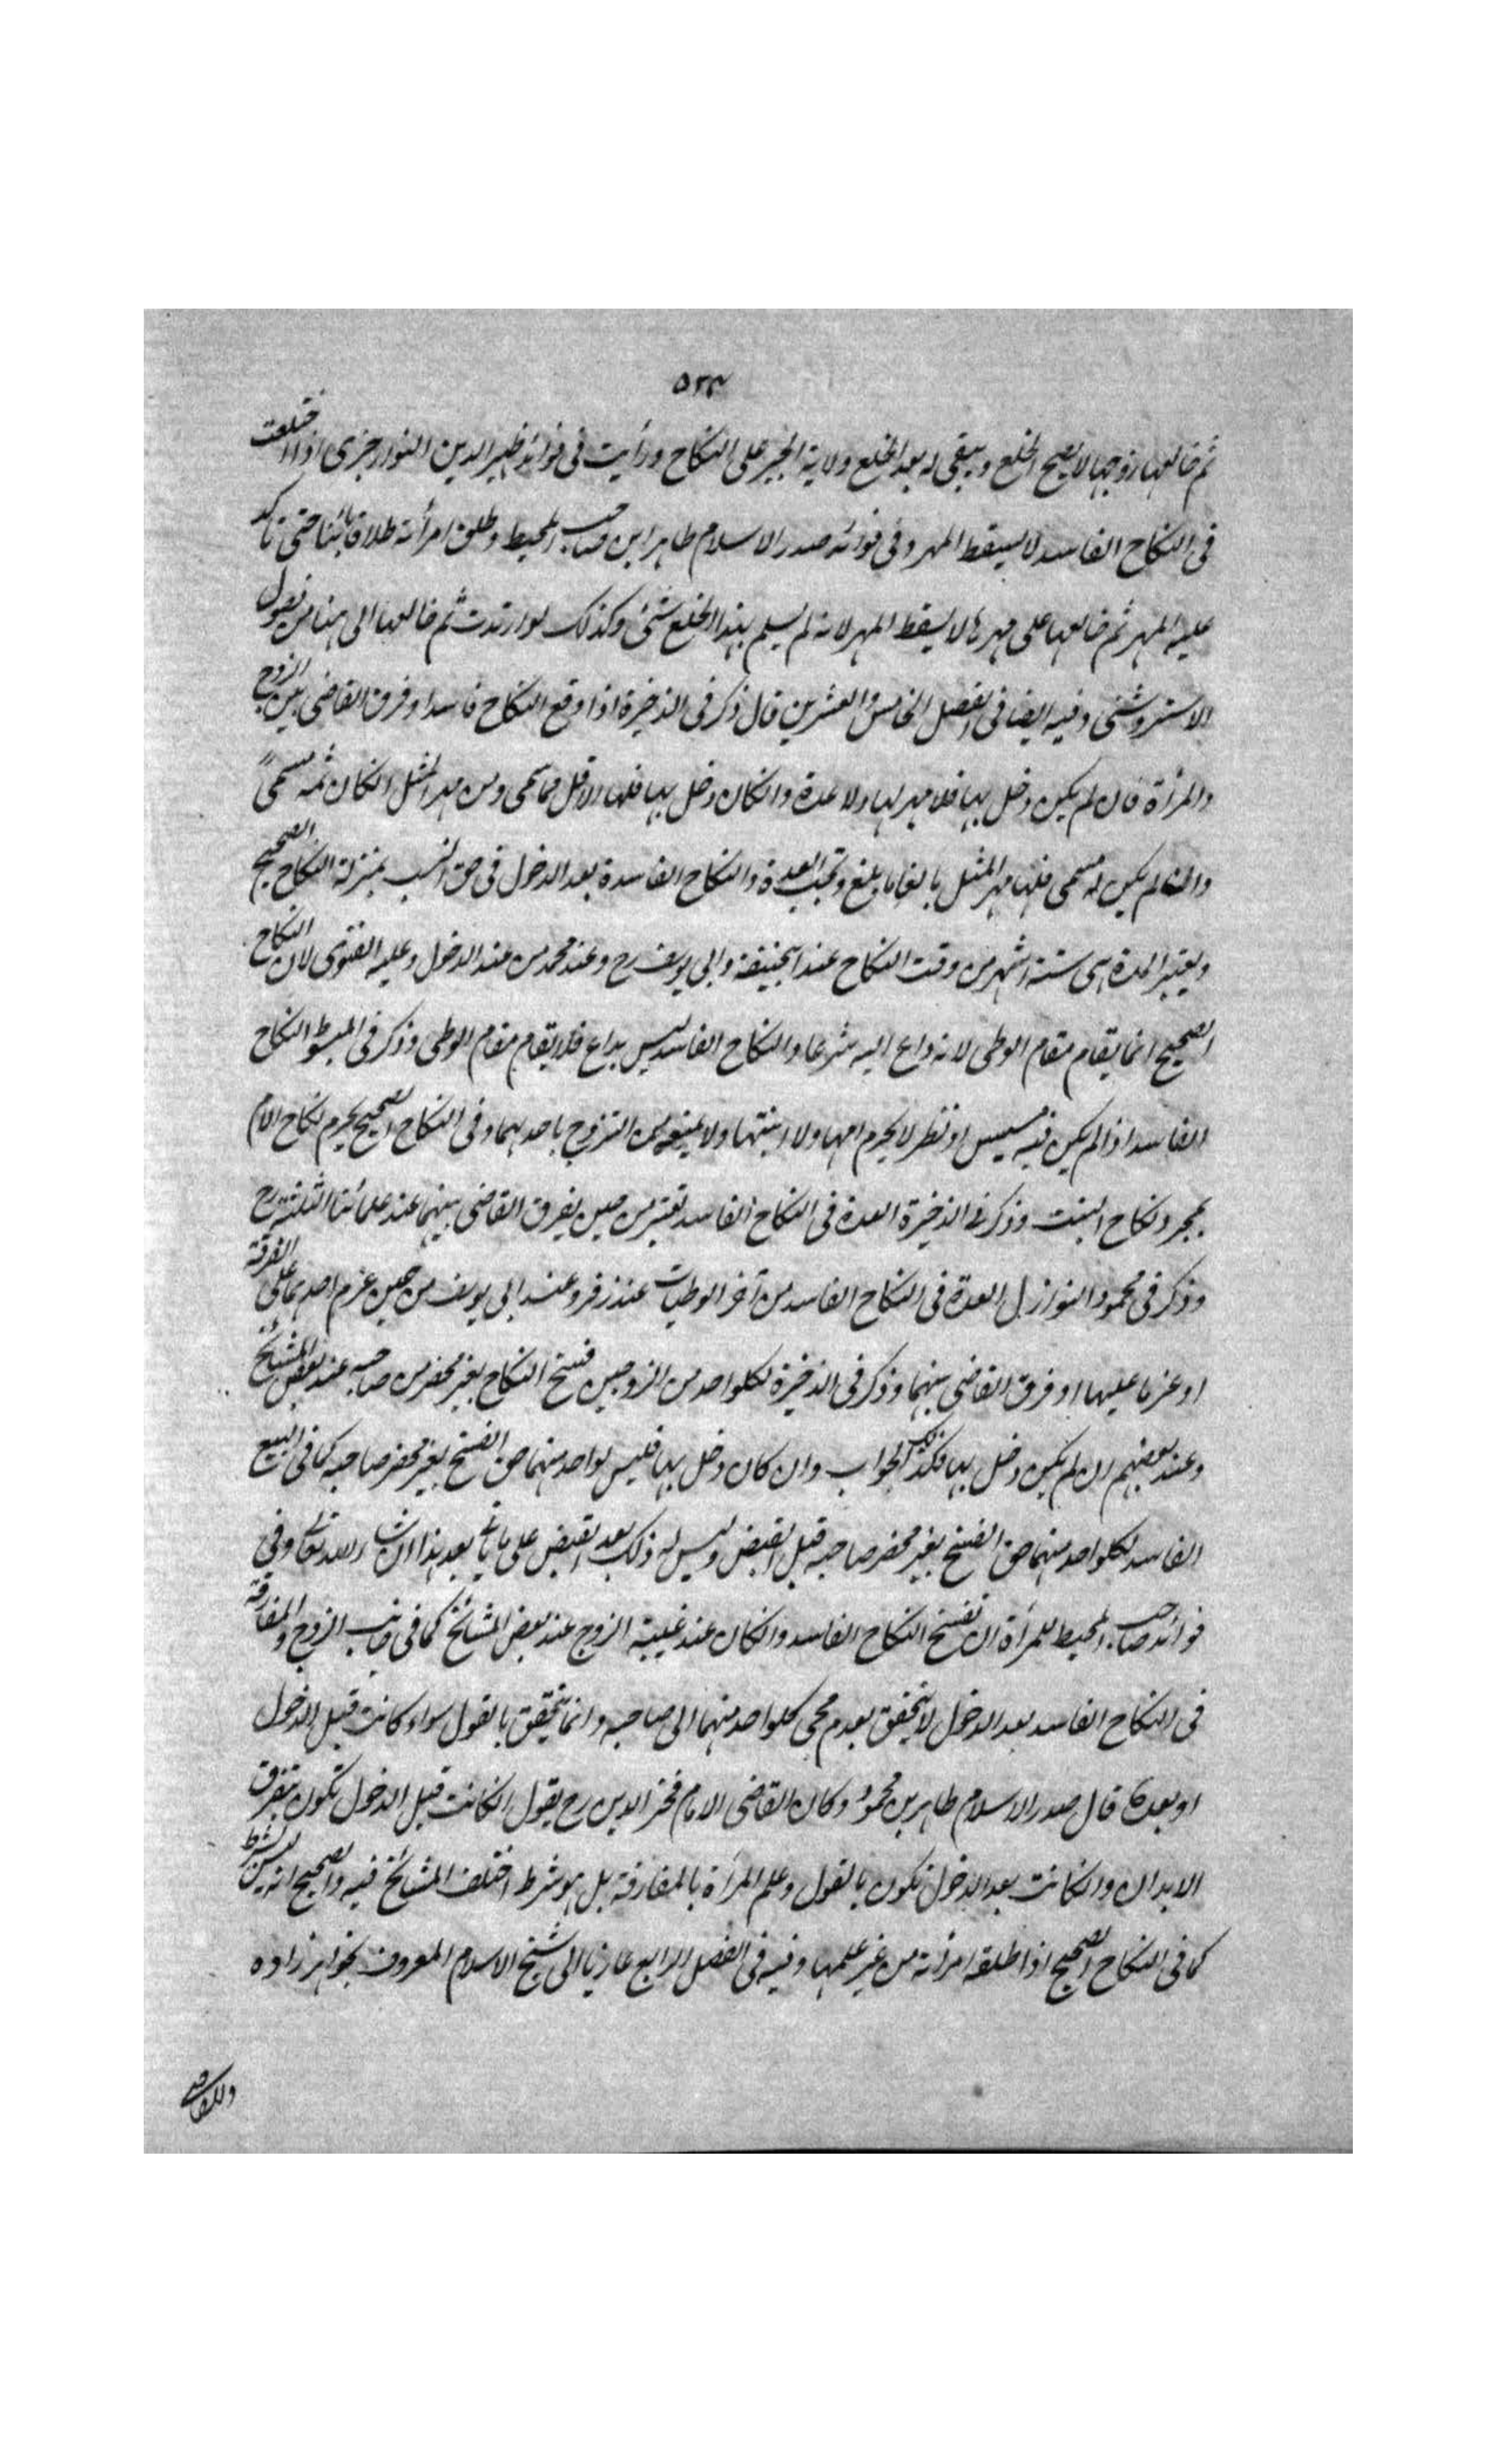 ٥٢٣
ثم خالعها زوجها لا يصح الخلع ويبقى له بعد الخلع ولاية الجبر على النكاح ورأيت في فوائد ظهير الدين النوارجزى اذا اختلعت
في النكاح الفاسد لا يسقط المهر وفي فوائد صدر الاسلام طاهر ابن صاحب المحيط وطلق امرأته طلاقا بائنا حتى تاكد
عليه المهر ثم خالعها على مهرها لا يسقط المهر لانه لم يسلم بهذا الخلع شئ وكذلك لو ارتدت ثم خالعها الى هنا من فصول
الاستروشنى وفيه ايضا في الفصل الخامس والعشرين قال ذكر في الذخيرة اذا وقع النكاح فاسدا وفرق القاضي بين الزوج
والمرأة فان لم يكن دخل بها فلا مهر لها ولا عدة وانكان دخل بها فلها الاقل مما سمى ومن مهر المثل انكان ثمه مسمىً
وان لم يكن له مسمى فلها مهر المثل بالغا ما بلغ وتجب العدة والنكاح الفاسدة بعد الدخول في حق النسب بمنزلة النكاح الصحيح
ويعتبر المدة هي ستة اشهر من وقت النكاح عند ابيحنيفة وابي يوسف رح وعند محمد من عند الدخول وعليه الفتوى لان النكاح
الصحيح انما يقام مقام الوطى لانه داع اليه شرعا والنكاح الفاسد ليس بداع فلا يقام مقام الوطى وذكر في المبسوط النكاح
الفاسد اذا لم يكن فيه مسيس او نظر لا يحرم امها ولا ابنتها ولا يمنعه من التزوج باحدهما وفي النكاح الصحيح يحرم نكاح الام
بمجرد نكاح البنت وذكر في الذخيرة العدة في النكاح الفاسد تعتبر من حين يفرق القاضي بينهما عند علمائنا الثلثة رح
وذكر في مجموع النوازل العدة في النكاح الفاسد من آخر الوطيات عند زفر وعند ابي يوسف من حين عزم احدهما على الفرقة
او عزما عليها او فرق القاضي بينهما وذكر في الذخيرة لكلواحد من الزوجين فسخ النكاح بغير محضر من صاحبه عند بعض المشائخ
وعند بعضهم ان لم يكن دخل بها فكذلك الجواب وان كان دخل بها فليس لواحد منهما حق الفسخ بغير محضر صاحبه كما في البيع
الفاسد لكلواحد منهما حق الفسخ بغير محضر صاحبه قبل القبض وليس له ذلك بعد القبض على ما ياتي بعد هذا ان شاء الله تعالى وفي
فوائد صاحب المحيط للمرأة ان تفسخ النكاح الفاسد وانكان عند غيبة الزوج عند بعض المشائخ كما في جانب الزوج والمفارقة
في النكاح الفاسد بعد الدخول لا يتحقق بعدم مجى كلواحد منهما الى صاحبه وانما يتحقق بالقول سواء كانت قبل الدخول
او بعده قال صدر الاسلام طاهر بن محمود وكان القاضي الامام فخر الدين رح يقول انكانت قبل الدخول تكون بتفرق
الابدان وانكانت بعد الدخول تكون بالقول وعلم المرأة بالمفارقة بل هو شرط اختلف المشائخ فيه والصحيح انه ليس بشرط
كما في النكاح الصحيح اذا طلقه امرأته من غير علمها وفيه في الفصل الرابع عازيا الى شيخ الاسلام المعروف بخواهر زاده
وللقاضي